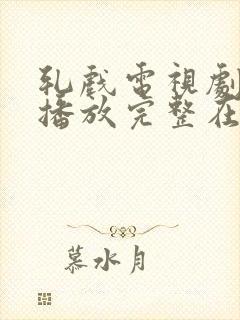 乳戲電視劇
播放完整在
慕水月